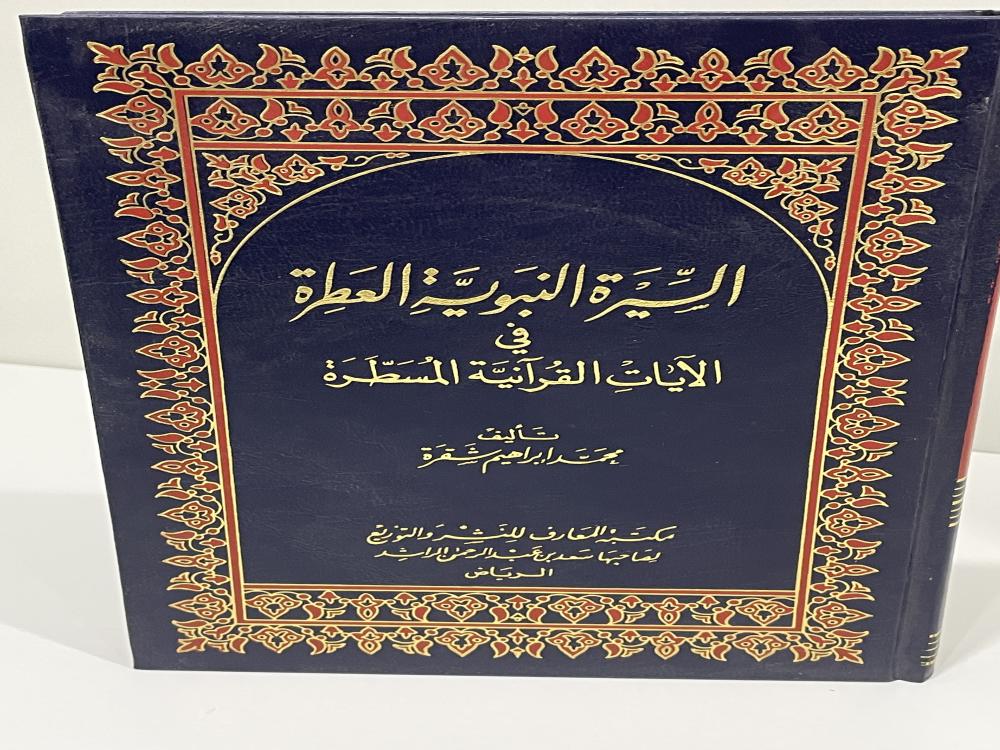 السِّيْرَة النبَويَّةِ العَطِرَة
في
الآيَاتِ القُرآنيَّة المُسَطَّرَة
تَأليف
محمَّد ابراهيم شَقرة
مكتَبة المعَارف للنَشْر والتوزيْع
لصَاحبهَا سَعد بن عَبد الرحمٰن الراشد
الريَاض